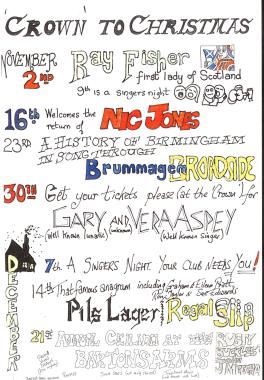 'CROWN' TO CHRISTMAS
NOVEMBER
2ND Ray Fisher
first lady of Scotland
9th is a singers night
16th Welcomes the return of NIC JONES
23RD A HISTORY OF BIRMINGHAM
IN SONG THROUGH
Brummagem BROADSIDE
30TH Get your tickets please (at the Crown) for
GARY AND VERA ASPEY
(Well known lunatic) (unknown) (Well known Singer)
DECEMBER
7th A SINGERS NIGHT. YOUR CLUB NEEDS You!
14th That famous anagram including Graham & Eileen
Pils Lager Regal Slip
21st ANNUAL CEILIDH AT THE
BARTONS ARMS